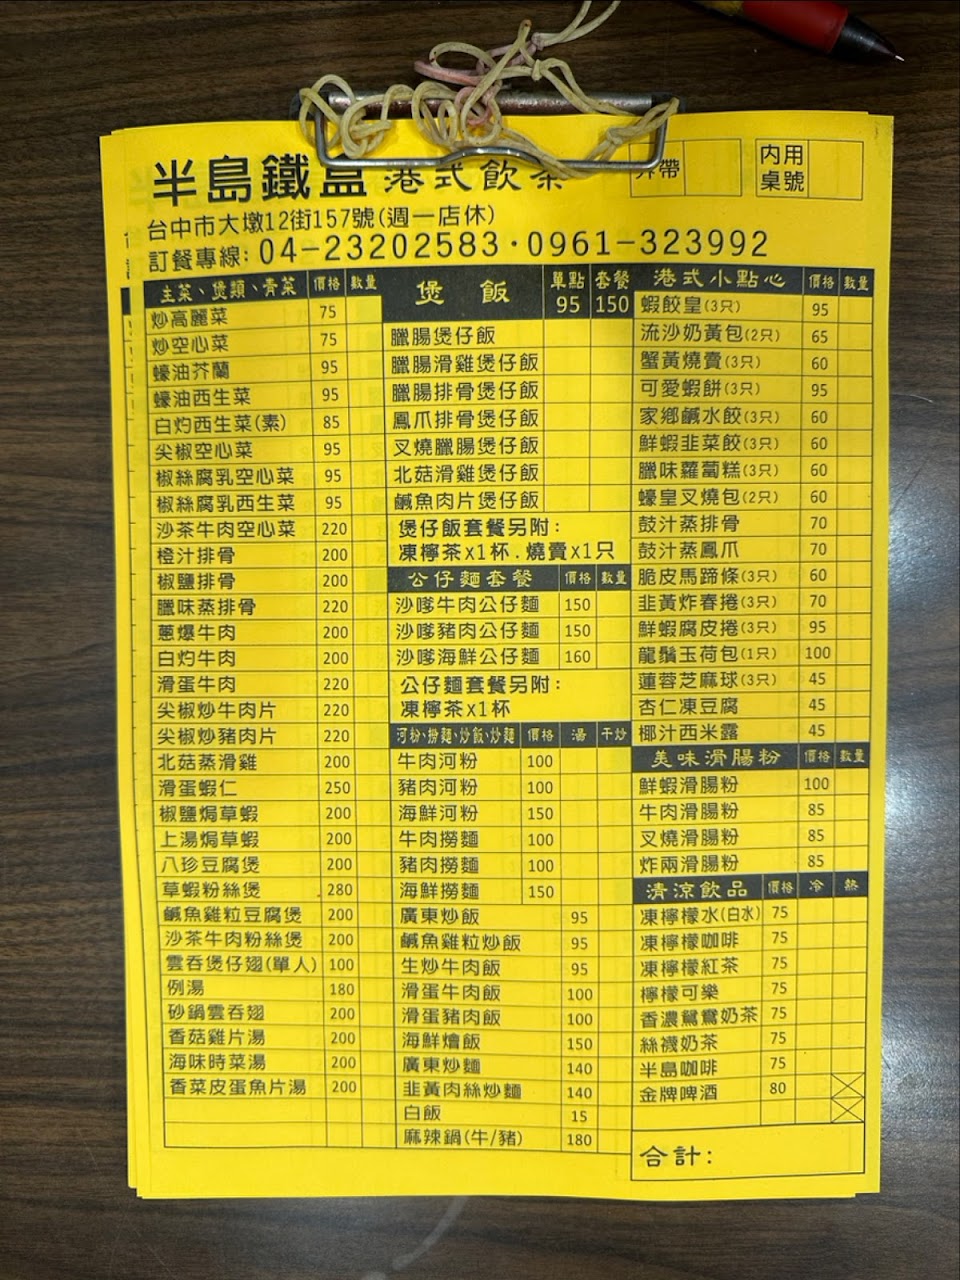 半島鐵盒 港式飲茶
外帶
內用桌號
台中市大墩12街157號(週一店休)
訂餐專線: 04-23202583·0961-323992
主菜、煲類、青菜 價格 數量
炒高麗菜 75
炒空心菜 75
蠔油芥蘭 95
蠔油西生菜 95
白灼西生菜(素) 85
尖椒空心菜 95
椒絲腐乳空心菜 95
椒絲腐乳西生菜 95
沙茶牛肉空心菜 220
橙汁排骨 200
椒鹽排骨 200
臘味蒸排骨 220
蔥爆牛肉 200
白灼牛肉 200
滑蛋牛肉 220
尖椒炒牛肉片 220
尖椒炒豬肉片 220
北菇蒸滑雞 200
滑蛋蝦仁 250
椒鹽焗草蝦 200
上湯焗草蝦 200
八珍豆腐煲 200
草蝦粉絲煲 280
鹹魚雞粒豆腐煲 200
沙茶牛肉粉絲煲 200
雲吞煲仔翅(單人) 100
例湯 180
砂鍋雲吞翅 200
香菇雞片湯 200
海味時菜湯 200
香菜皮蛋魚片湯 200
煲飯 單點 95 套餐 150
臘腸煲仔飯
臘腸滑雞煲仔飯
臘腸排骨煲仔飯
鳳爪排骨煲仔飯
叉燒臘腸煲仔飯
北菇滑雞煲仔飯
鹹魚肉片煲仔飯
煲仔飯套餐另附:
凍檸茶x1杯.燒賣x1只
公仔麵套餐 價格 數量
沙嗲牛肉公仔麵 150
沙嗲豬肉公仔麵 150
沙嗲海鮮公仔麵 160
公仔麵套餐另附:
凍檸茶x1杯
河粉、撈麵、炒飯、炒麵 價格 湯 干炒
牛肉河粉 100
豬肉河粉 100
海鮮河粉 150
牛肉撈麵 100
豬肉撈麵 100
海鮮撈麵 150
廣東炒飯 95
鹹魚雞粒炒飯 95
生炒牛肉飯 95
滑蛋牛肉飯 100
滑蛋豬肉飯 100
海鮮燴飯 150
廣東炒麵 140
韭黃肉絲炒麵 140
白飯 15
麻辣鍋(牛/豬) 180
港式小點心 價格 數量
蝦餃皇(3只) 95
流沙奶黃包(2只) 65
蟹黃燒賣(3只) 60
可愛蝦餅(3只) 95
家鄉鹹水餃(3只) 60
鮮蝦韭菜餃(3只) 60
臘味蘿蔔糕(3只) 60
蠔皇叉燒包(2只) 60
鼓汁蒸排骨 70
鼓汁蒸鳳爪 70
脆皮馬蹄條(3只) 60
韭黃炸春捲(3只) 70
鮮蝦腐皮捲(3只) 95
龍鬚玉荷包(1只) 100
蓮蓉芝麻球(3只) 45
杏仁凍豆腐 45
椰汁西米露 45
美味滑腸粉 價格 數量
鮮蝦滑腸粉 100
牛肉滑腸粉 85
叉燒滑腸粉 85
炸兩滑腸粉 85
清涼飲品 價格 冷 熱
凍檸檬水(白水) 75
凍檸檬咖啡 75
凍檸檬紅茶 75
檸檬可樂 75
香濃鴛鴦奶茶 75
絲襪奶茶 75
半島咖啡 75
金牌啤酒 80
合計: